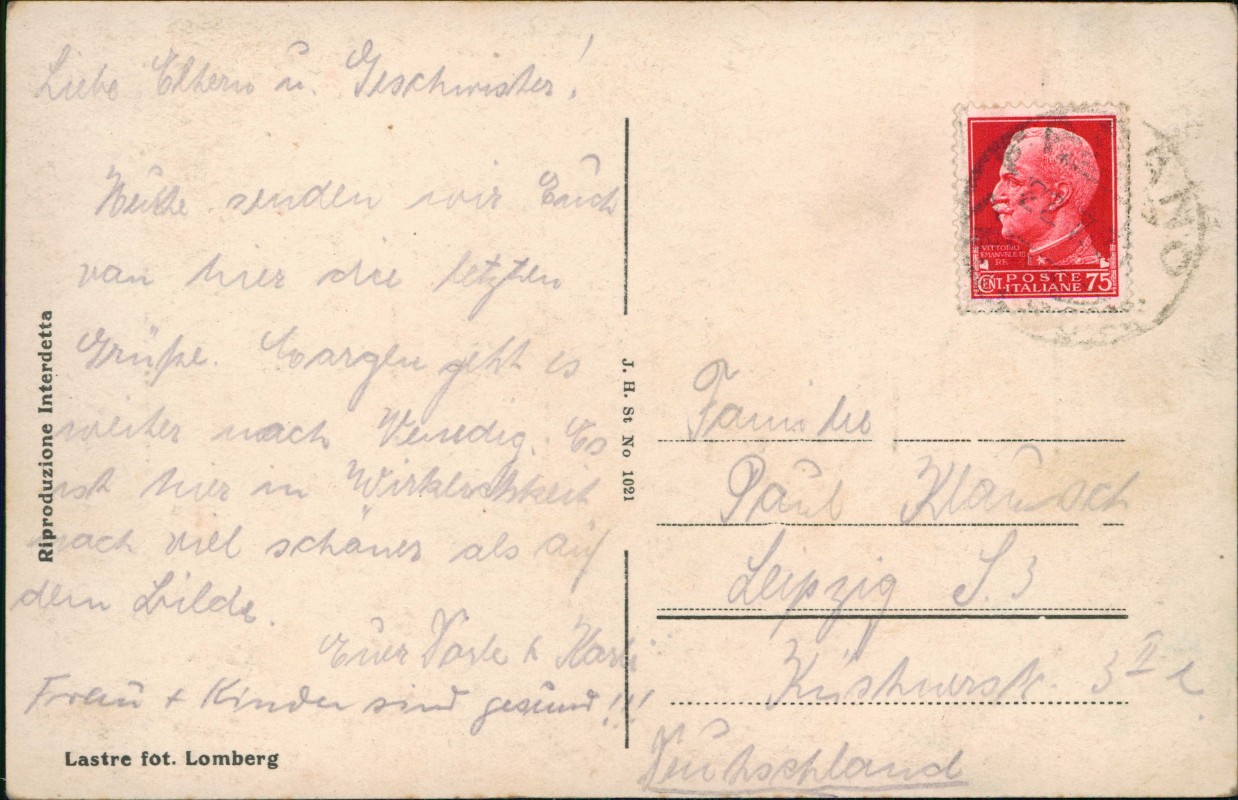 Liebe Eltern u. Geschwister!
Heute senden wir Euch
von hier die letzten
Grüße. Morgen geht es
weiter nach Venedig. Es
ist hier in Wirklichkeit
noch viel schöner als auf
dem Bilde.
Euer
Frau + Kinder sind gesund!!!
Riproduzione Interdetta
Lastre fot. Lomberg
J. H. St No 1021
VITTORIO
EMANUELE III
RE
CENT. POSTE
ITALIANE 75
Familie
Paul Klausch
Leipzig S. 3
3 II
Deutschland